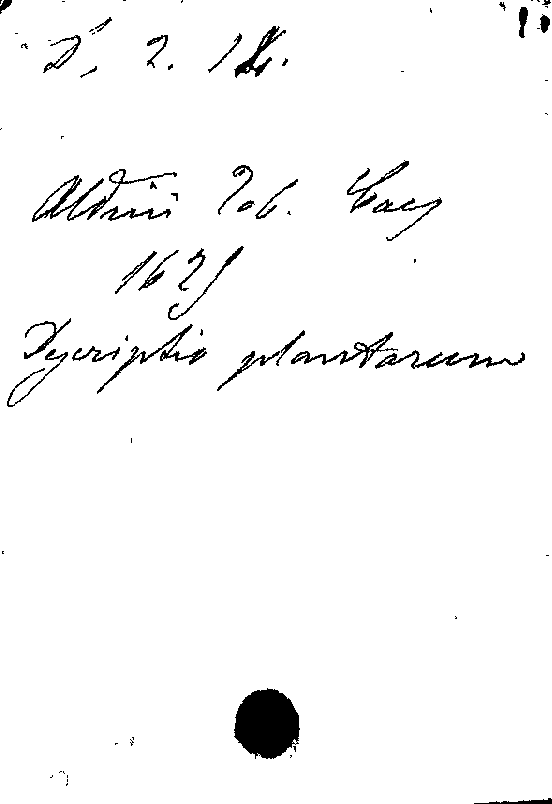 D. 2. 18.
Aldini Tob. Caes
1625
Descriptio plantarum